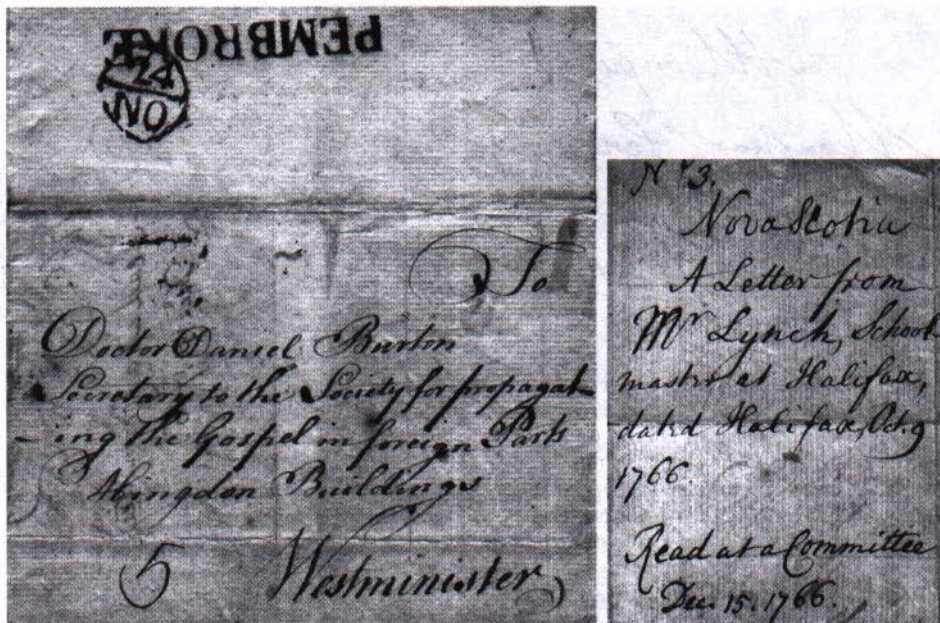 PEMBROKE
24
NO
To
Doctor Daniel Burton
Secretary to the Society for propagat-
ing the Gospel in foreign Parts
Abingdon Buildings
5 Westminister
No 3.
Nova Scotia
A Letter from
Mr Lynch, School-
master at Halifax,
dated Halifax, Oct. 9
1766.
Read at a Committee
Dec. 15. 1766.